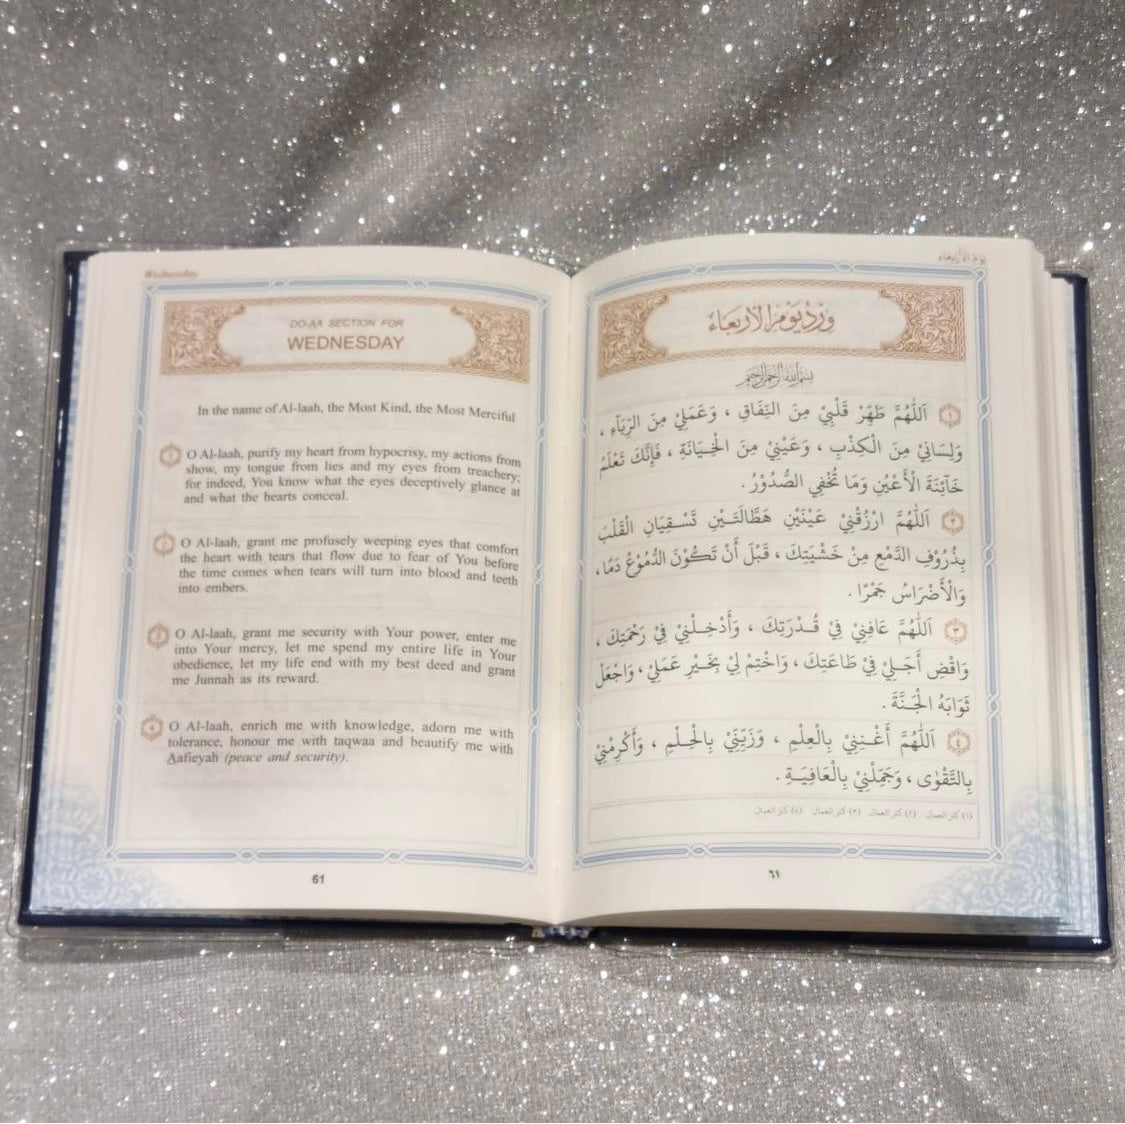 Wednesday
DO-AA SECTION FOR
WEDNESDAY
In the name of Al-laah, the Most Kind, the Most Merciful
1 O Al-laah, purify my heart from hypocrisy, my actions from
show, my tongue from lies and my eyes from treachery;
for indeed, You know what the eyes deceptively glance at
and what the hearts conceal.
2 O Al-laah, grant me profusely weeping eyes that comfort
the heart with tears that flow due to fear of You before
the time comes when tears will turn into blood and teeth
into embers.
3 O Al-laah, grant me security with Your power, enter me
into Your mercy, let me spend my entire life in Your
obedience, let my life end with my best deed and grant
me Junnah as its reward.
4 O Al-laah, enrich me with knowledge, adorn me with
tolerance, honour me with taqwaa and beautify me with
Aafieyah (peace and security).
61
يَوْمُ الْأَرْبِعَاء
وِرْدُ يَوْمِ الْأَرْبِعَاءُ
بِسْمِ اللهِ الرَّحْمٰنِ الرَّحِيْمِ
١ اَللّٰهُمَّ طَهِّرْ قَلْبِيْ مِنَ النِّفَاقِ ، وَعَمَلِيْ مِنَ الرِّيَآءِ ،
وَلِسَانِيْ مِنَ الْكِذْبِ ، وَعَيْنِيْ مِنَ الْخِيَانَةِ ، فَإِنَّكَ تَعْلَمُ
خَآئِنَةَ الْأَعْيُنِ وَمَا تُخْفِي الصُّدُوْرُ .
٢ اَللّٰهُمَّ ارْزُقْنِيْ عَيْنَيْنِ هَطَّالَتَيْنِ تَسْقِيَانِ الْقَلْبَ
بِذُرُوْفِ الدَّمْعِ مِنْ خَشْيَتِكَ ، قَبْلَ أَنْ تَكُوْنَ الدُّمُوْعُ دَمًا ،
وَالْأَضْرَاسُ جَمْرًا .
٣ اَللّٰهُمَّ عَافِنِيْ فِيْ قُدْرَتِكَ ، وَأَدْخِلْنِيْ فِيْ رَحْمَتِكَ ،
وَاقْضِ أَجَلِيْ فِيْ طَاعَتِكَ ، وَاخْتِمْ لِيْ بِخَيْرِ عَمَلِيْ ، وَاجْعَلْ
ثَوَابَهُ الْجَنَّةَ .
٤ اَللّٰهُمَّ أَغْنِنِيْ بِالْعِلْمِ ، وَزَيِّنِّيْ بِالْحِلْمِ ، وَأَكْرِمْنِيْ
بِالتَّقْوٰى ، وَجَمِّلْنِيْ بِالْعَافِيَةِ .
(١) كنز العمال (٢) كنز العمال (٣) كنز العمال (٤) كنز العمال
٦١